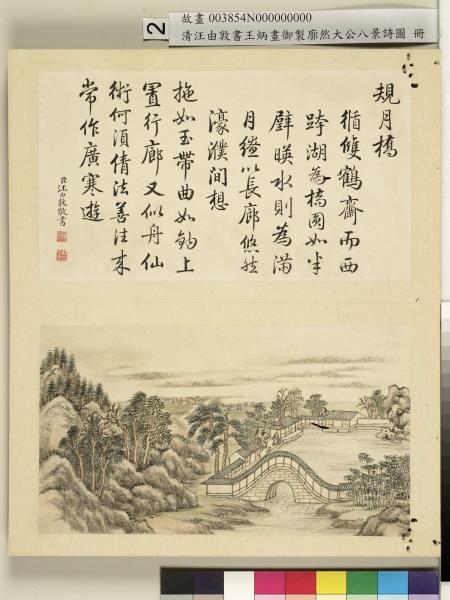 2
故畫 003854N000000000
清汪由敦書王炳畫御製廓然大公八景詩圖 冊
規月橋
循雙鶴齋而西
跨湖為橋圓如半
璧暎水則為滿
月繚以長廊悠然
濠濮間想
拖如玉帶曲如鈎上
置行廊又似舟仙
術何須倩法善往來
常作廣寒遊
臣汪由敦敬書